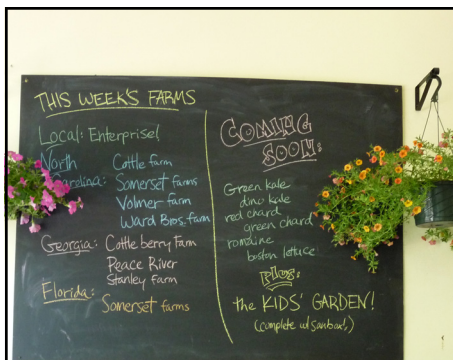 THIS WEEK'S FARMS
Local: Enterprise!
North Cottle farm
Carolina: Somerset farms
Volmer farm
Ward Bros. farm
Georgia: Cottle berry Farm
Peace River
Stanley Farm
Florida: Somerset farms
COMING
SOON:
Green kale
dino kale
red chard
green chard
romaine
boston lettuce
PLUS:
the KIDS' GARDEN!
(complete w/ sanbox!)